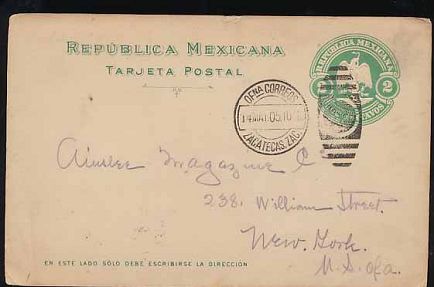 REPÚBLICA MEXICANA
TARJETA POSTAL
REPUBLICA MEXICANA
2
OFNA CORREOS
ZACATECAS, ZAC.
Ainslee Magazine C
238. William Street.
New. York.
U.S. of a.
EN ESTE LADO SÓLO DEBE ESCRIBIRSE LA DIRECCIÓN